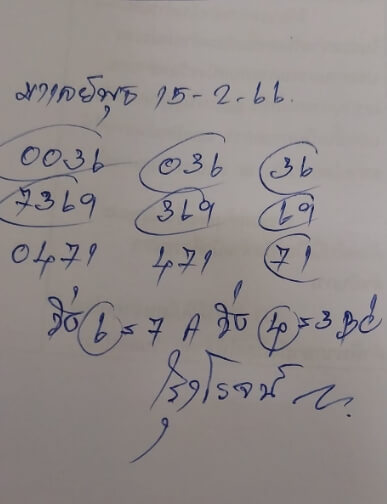 มาเลย์พุธ 15-2-66.
0036 036 36
7369 369 69
0471 471 71
6 = 7 A 4 = 3 BC
รุ่งโรจน์